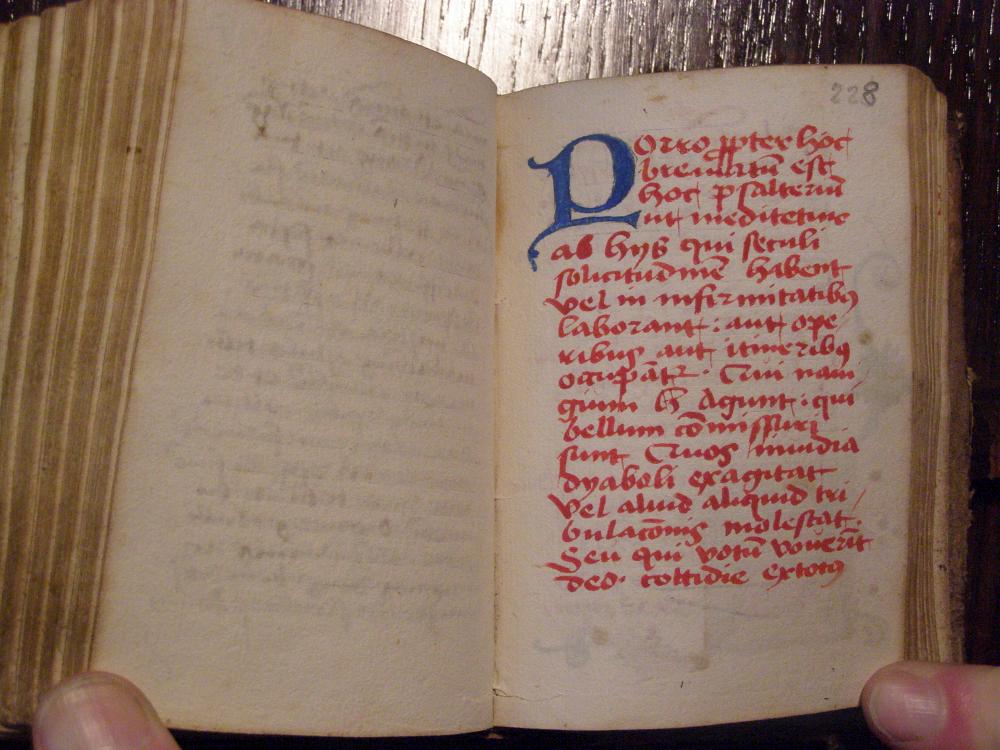 228
Porro ppter hoc
breuiatū est
hoc psalteriū
ut meditetur
ab hijs qui seculi
solicitudinē habent
vel in infirmitatibus
laborant: aut ope
ribus aut itineribus
occupātr. Qui naui
gium h Agunt: qui
bellum cōmissuri
sunt Quos inuidia
dyaboli exagitat
vel aliud aliquid tri
bulacōnis molestat.
Seu qui votū vouerīt
deo. cottidie ex toto